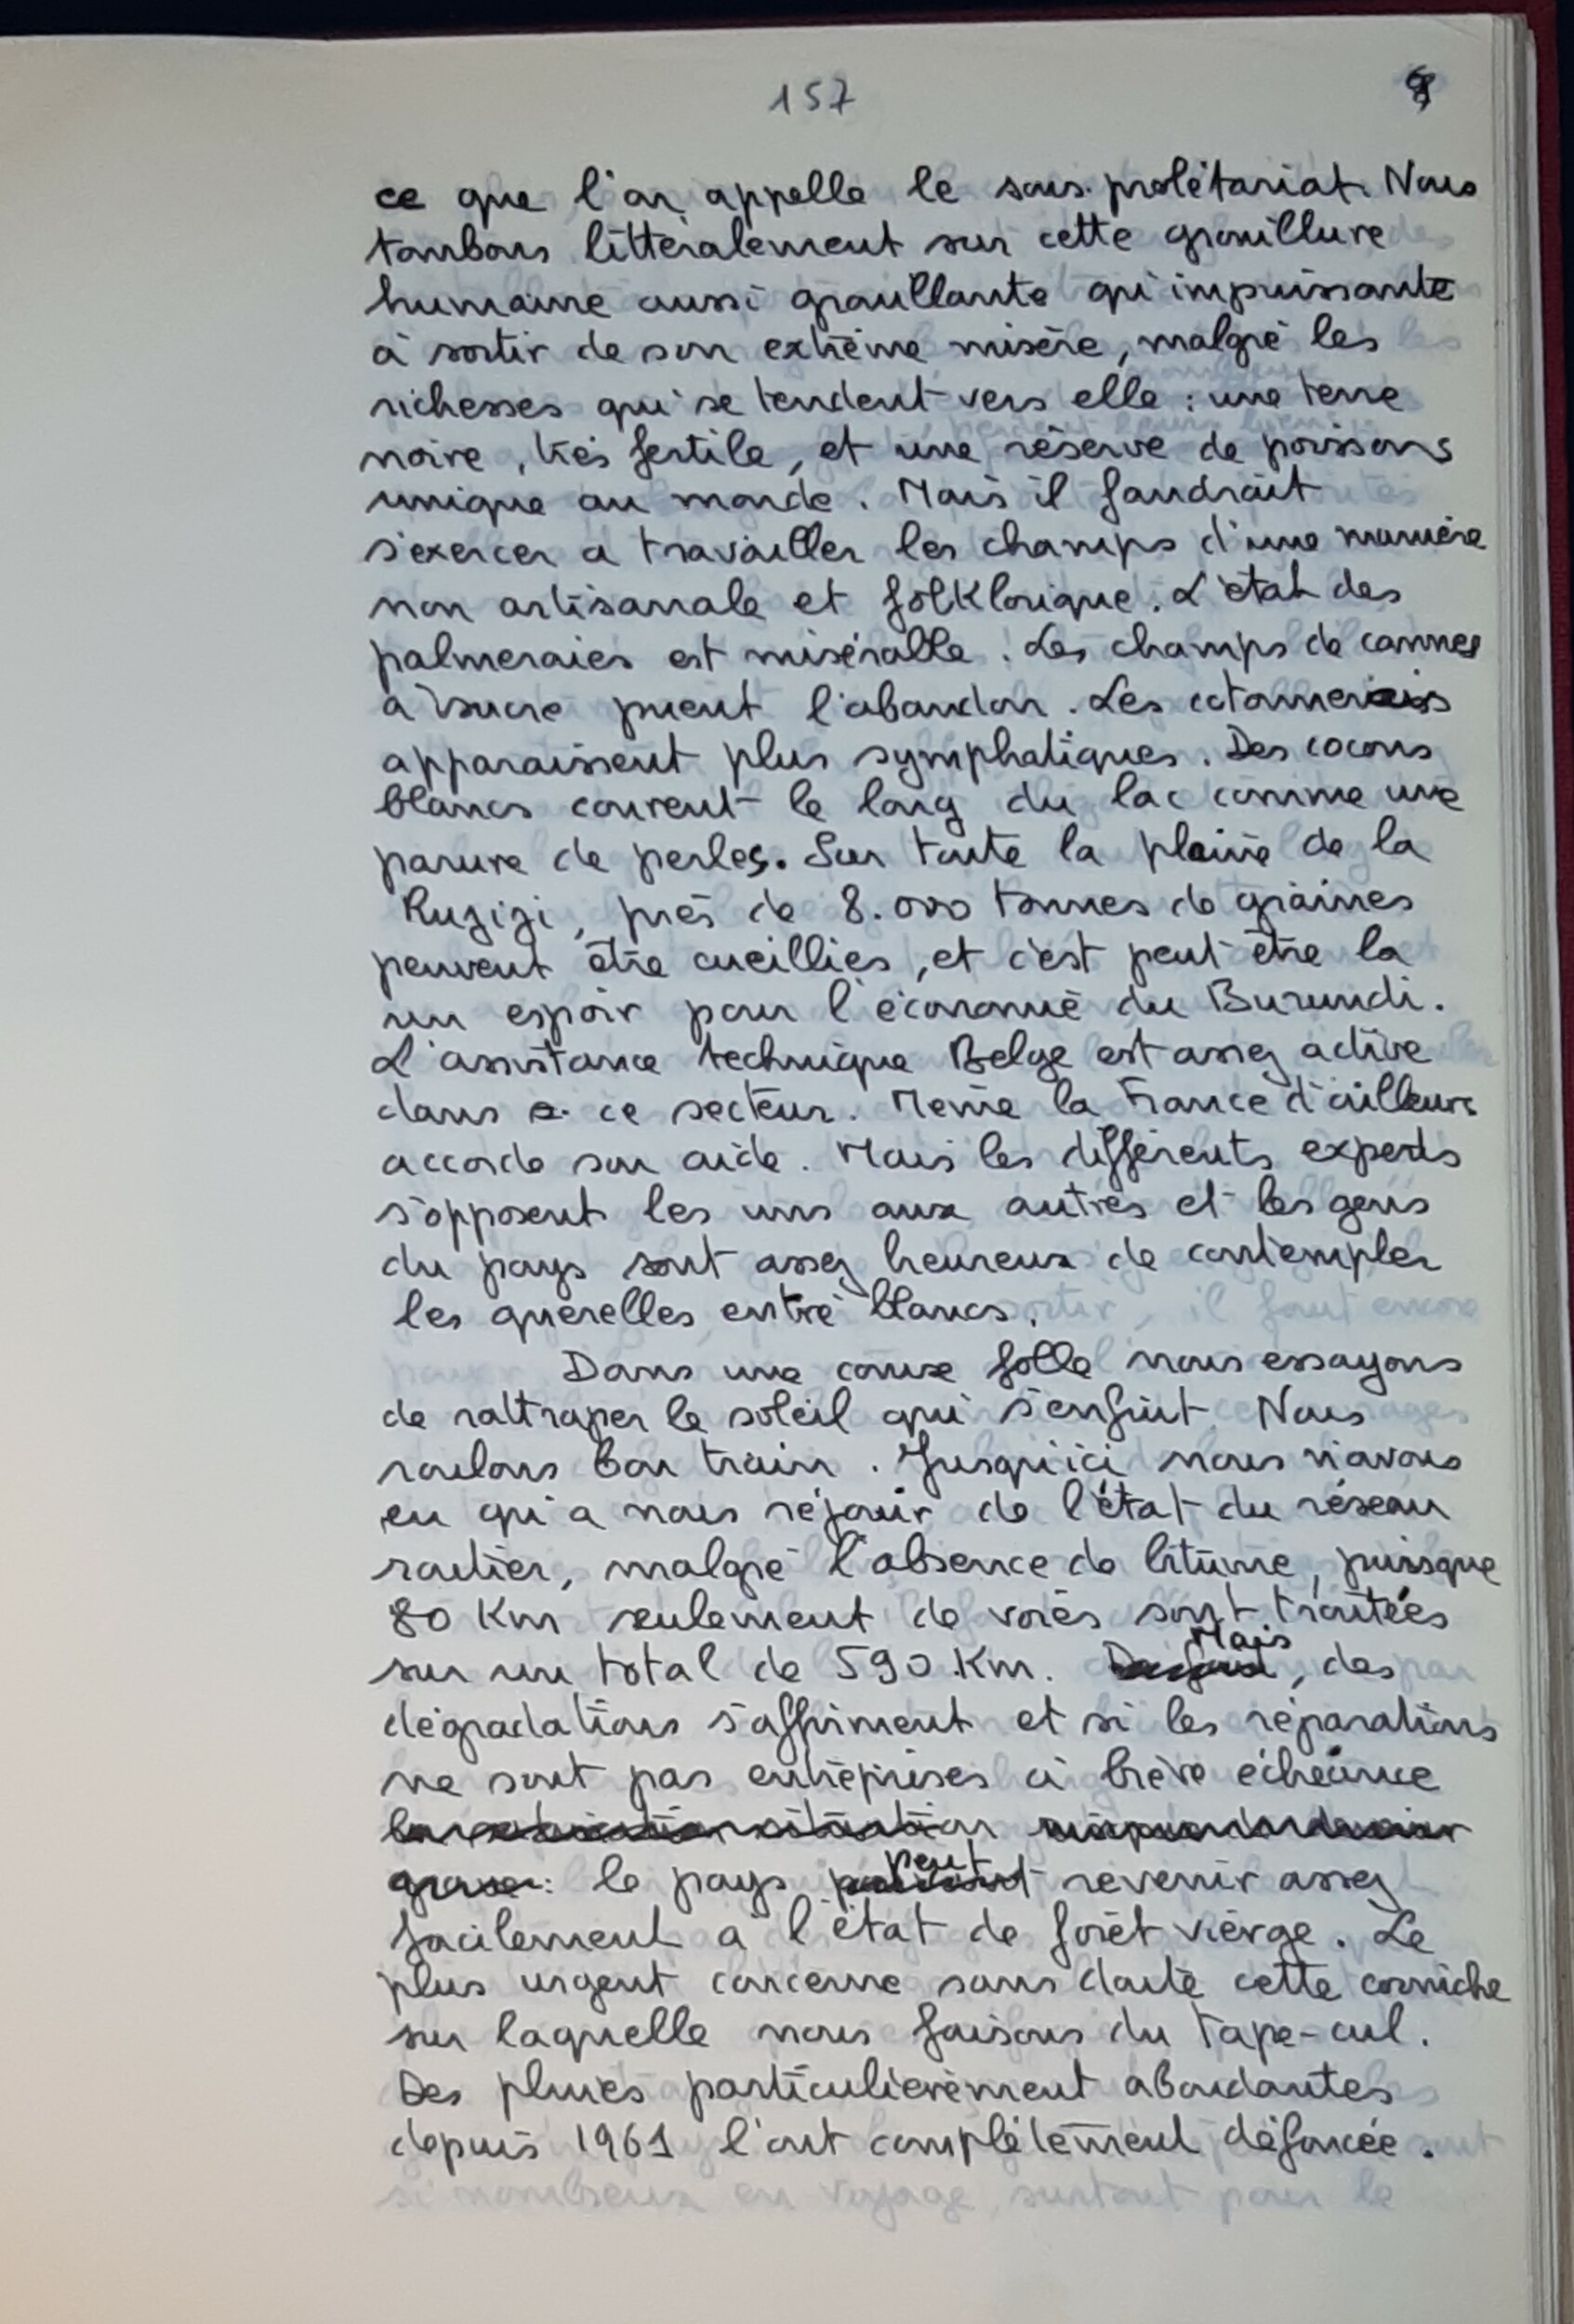 157
ce que l'on appelle le sous-prolétariat. Nous
tombons littéralement sur cette grouillure
humaine aussi grouillante qu'impuissante
à sortir de son extrême misère, malgré les
richesses qui se tendent vers elle : une terre
noire, très fertile, et une réserve de poissons
unique au monde. Mais il faudrait
s'exercer a travailler les champs d'une manière
non artisanale et folklorique. L'état des
palmeraies est misérable ! Les champs de cannes
à sucre puent l'abandon. Les cotonneraies
apparaissent plus symphatiques. Des cocons
blancs courent le long du lac comme une
parure de perles. Sur toute la plaine de la
Ruzizi, près de 8.000 tonnes de graines
peuvent être cueillies, et c'est peut être la
un espoir pour l'économie du Burundi.
L'assistance technique Belge est assez active
dans ce secteur. Même la France d'ailleurs
accorde son aide. Mais les différents experts
s'opposent les uns aux autres et les gens
du pays sont assez heureux de contempler
les querelles entre blancs.
Dans une course folle nous essayons
de rattraper le soleil qui s'enfuit. Nous
roulons bon train. Jusqu'ici nous n'avons
eu qu'a nous réjouir de l'état du réseau
routier, malgré l'absence de bitume, puisque
80 Km seulement de voies sont traitées
sur un total de 590 Km. Mais, des
dégradations s'affirment et si les réparations
ne sont pas entreprises à brève échéance
le pays peut revenir assez
facilement à l'état de forêt vierge. Le
plus urgent concerne sans doute cette corniche
sur laquelle nous faisons du tape-cul.
Des pluies particulièrement abondantes
depuis 1961 l'ont complètement défoncée.